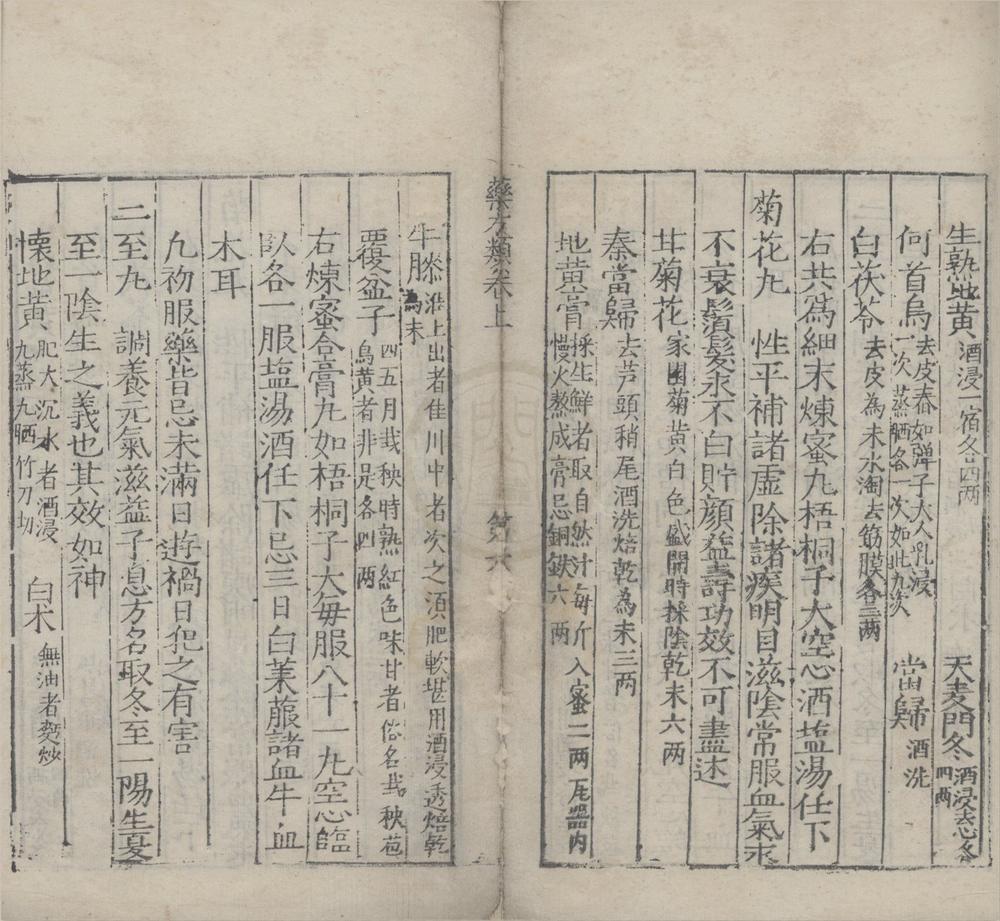 生熟地黄酒浸一宿各四两　天麦門冬酒浸去心各四两
何首烏去皮春如弹子大人乳浸一次蒸晒各一次如此九次　當歸酒洗
白茯苓去皮為末水淘去筋膜各三两
右共為細末煉蜜丸梧桐子大空心酒塩湯任下
菊花丸　性平補諸虛除諸疾明目滋陰常服血氣永
不衰鬚髮永不白貯顔益壽功效不可盡述
甘菊花家園菊黄白色盛開時採陰乾末六两
秦當歸去芦頭稍尾酒洗焙乾為末三两
地黄膏採生鮮者取自然汁每斤入蜜二两瓦器内慢火熬成膏忌銅鉄六两
藥方類卷上　第六
牛膝淮上出者佳川中者次之須肥軟堪用酒浸透焙乾為末
覆盆子四五月栽秧時熟紅色味甘者俗名栽秧苞烏黄者非是各四两
右煉蜜合膏丸如梧桐子大每服八十一丸空心臨
臥各一服塩湯酒任下忌三日白莱菔諸血牛血
木耳
凡初服藥皆忌未滿日遊禍日犯之有害
二至丸　調養元氣滋益子息方名取冬至一陽生夏
至一陰生之義也其效如神
懐地黄肥大沉水者酒浸九蒸九晒竹刀切　白术無油者麩炒